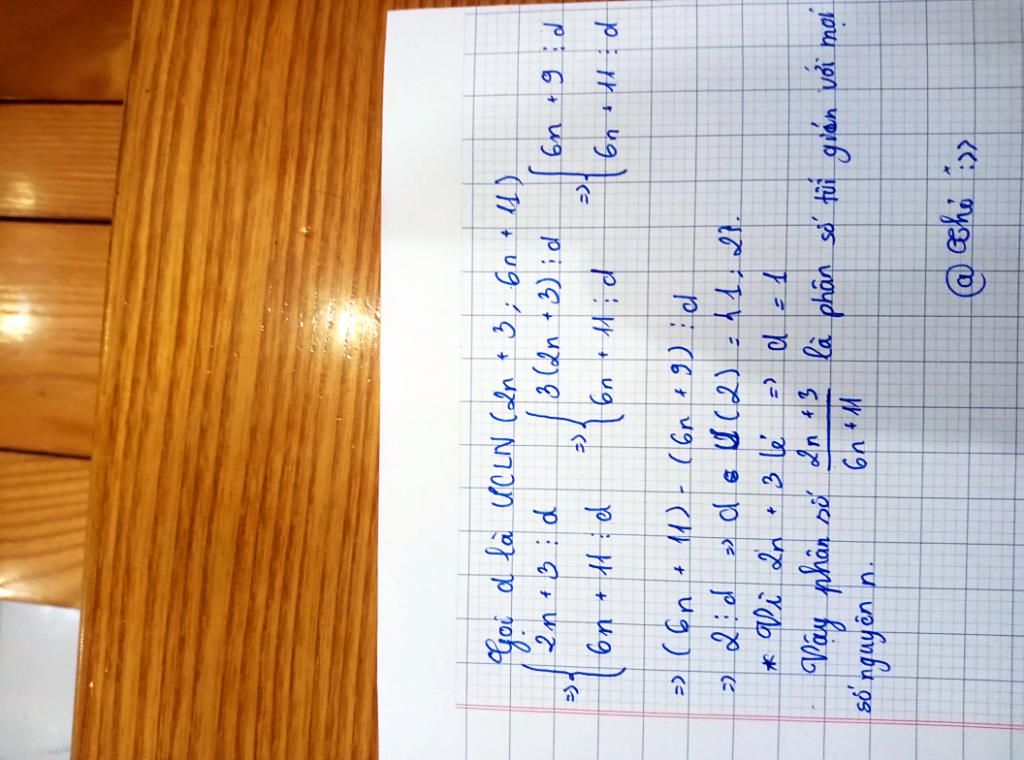 Gọi d là ƯCLN (2n + 3 ; 6n + 11)
=> { 2n + 3 ⋮ d => { 3(2n + 3) ⋮ d => { 6n + 9 ⋮ d
6n + 11 ⋮ d 6n + 11 ⋮ d 6n + 11 ⋮ d
=> (6n + 11) - (6n + 9) ⋮ d
=> 2 ⋮ d => d ∈ Ư(2) = {1 ; 2}.
* Vì 2n + 3 lẻ => d = 1
Vậy phân số \frac{2n + 3}{6n + 11} là phân số tối giản với mọi
số nguyên n.
@ Chi :>>